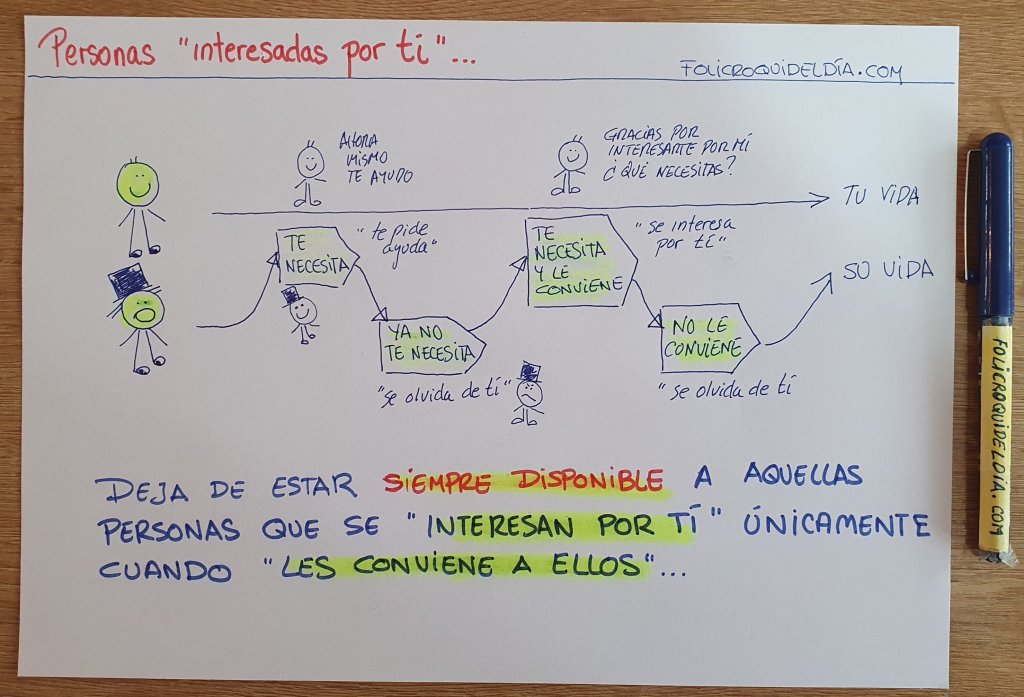 Personas "interesadas por tí"...
FOLICROQUIDELDÍA.COM
AHORA
MISMO
TE AYUDO
GRACIAS POR
INTERESARTE POR MÍ
¿QUÉ NECESITAS?
TU VIDA
TE
NECESITA
"te pide
ayuda"
TE
NECESITA
Y LE
CONVIENE
"se interesa
por tí"
SU VIDA
YA NO
TE NECESITA
"se olvida de tí"
NO LE
CONVIENE
"se olvida de tí
DEJA DE ESTAR SIEMPRE DISPONIBLE A AQUELLAS
PERSONAS QUE SE "INTERESAN POR TÍ" ÚNICAMENTE
CUANDO "LES CONVIENE A ELLOS"...
FOLICROQUIDELDÍA.COM